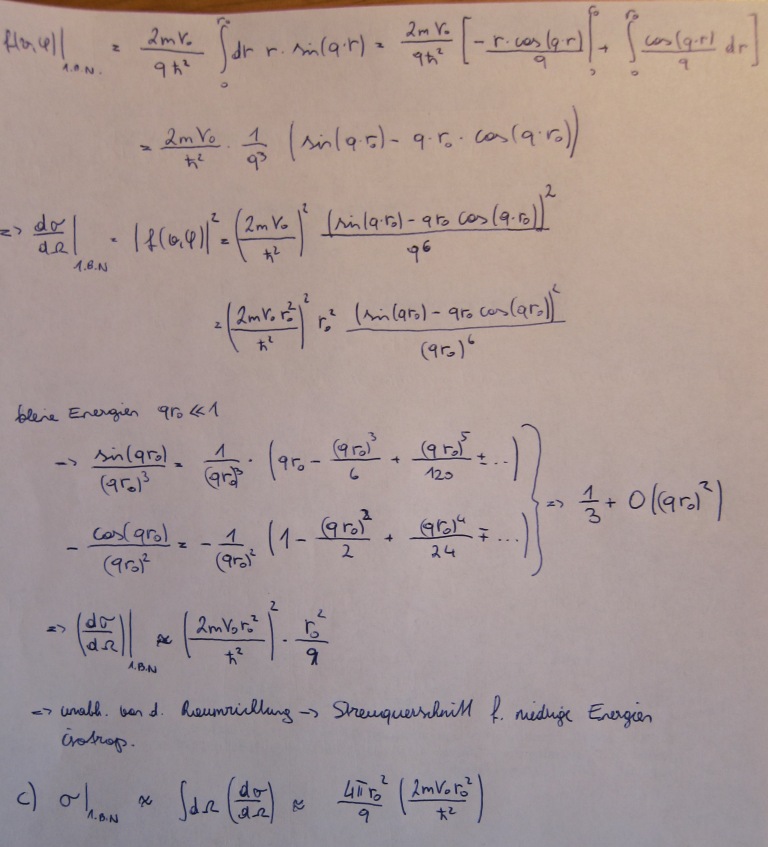 f(ϑ,φ)|_{1.B.N.} = 2mV₀/(qħ²) ∫₀^{r₀} dr r · sin(q·r) = 2mV₀/(qħ²) [ -r·cos(q·r)/q |₀^{r₀} + ∫₀^{r₀} cos(q·r)/q dr ]
= 2mV₀/ħ² · 1/q³ (sin(q·r₀) - q·r₀ · cos(q·r₀))
=> dσ/dΩ|_{1.B.N} = |f(ϑ,φ)|² = (2mV₀/ħ²)² (sin(q·r₀) - qr₀ cos(q·r₀))²/q⁶
= (2mV₀r₀²/ħ²)² r₀² (sin(qr₀) - qr₀ cos(qr₀))²/(qr₀)⁶
kleine Energien qr₀ ≪ 1
-> sin(qr₀)/(qr₀)³ = 1/(qr₀)³ · (qr₀ - (qr₀)³/6 + (qr₀)⁵/120 ± ...)
- cos(qr₀)/(qr₀)² = - 1/(qr₀)² (1 - (qr₀)²/2 + (qr₀)⁴/24 ∓ ...) } => 1/3 + O((qr₀)²)
=> (dσ/dΩ)|_{1.B.N} ≈ (2mV₀r₀²/ħ²)² · r₀²/9
=> unabh. von d. Raumrichtung -> Streuquerschnitt f. niedrige Energien
isotrop.
c) σ|_{1.B.N} ≈ ∫dΩ (dσ/dΩ) ≈ 4πr₀²/9 (2mV₀r₀²/ħ²)